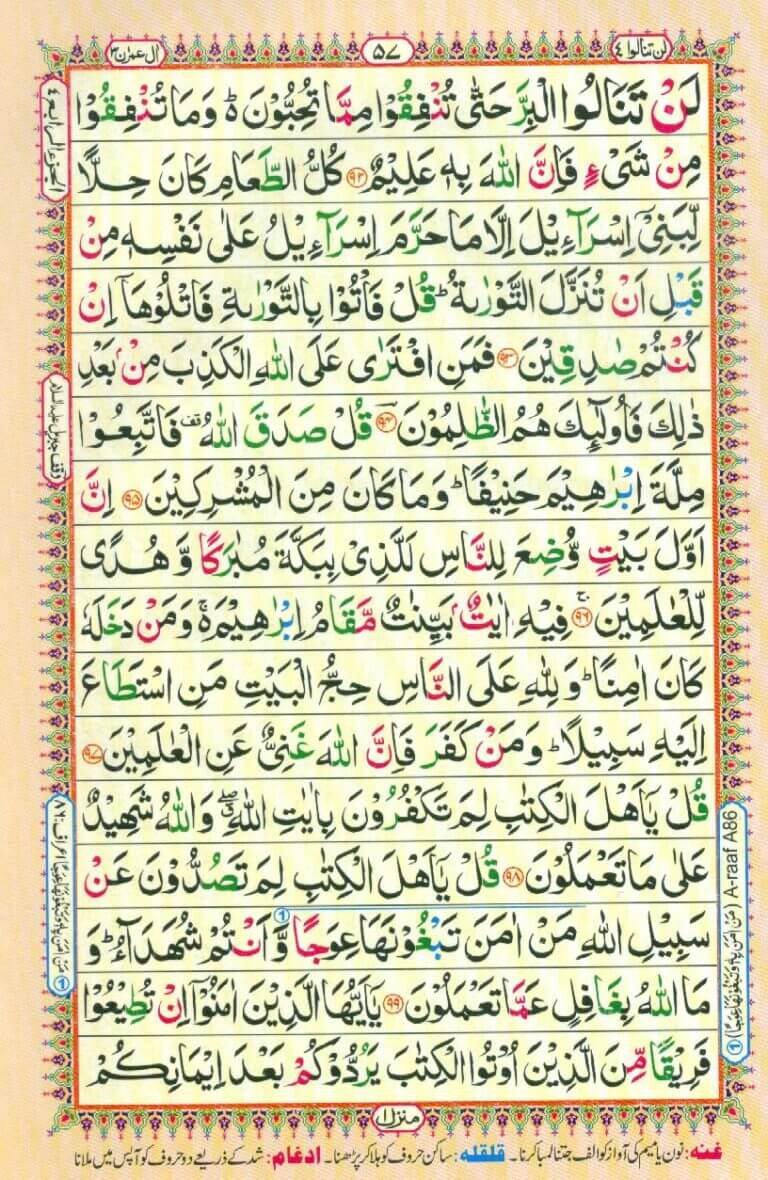 لن تنالوا ٤
٥٧
اٰل عمرٰن ٣
لَنۡ تَنَالُوا الۡبِرَّ حَتّٰى تُنۡفِقُوۡا مِمَّا تُحِبُّوۡنَ ؕ وَمَا تُنۡفِقُوۡا
مِنۡ شَىۡءٍ فَاِنَّ اللّٰهَ بِهٖ عَلِيۡمٌ ﴿۹۲﴾ كُلُّ الطَّعَامِ كَانَ حِلًّا
لِّبَنِىۡۤ اِسۡرَآءِيۡلَ اِلَّا مَا حَرَّمَ اِسۡرَآءِيۡلُ عَلٰى نَفۡسِهٖ مِنۡ
قَبۡلِ اَنۡ تُنَزَّلَ التَّوۡرٰٮةُ ؕ قُلۡ فَاۡتُوۡا بِالتَّوۡرٰٮةِ فَاتۡلُوۡهَاۤ اِنۡ
كُنۡتُمۡ صٰدِقِيۡنَ ﴿۹۳﴾ فَمَنِ افۡتَرٰى عَلَى اللّٰهِ الۡكَذِبَ مِنۡۢ بَعۡدِ
ذٰلِكَ فَاُولٰٓٮِٕكَ هُمُ الظّٰلِمُوۡنَ ﴿۹۴﴾ قُلۡ صَدَقَ اللّٰهُ فَاتَّبِعُوۡا
مِلَّةَ اِبۡرٰهِيۡمَ حَنِيۡفًا ؕ وَمَا كَانَ مِنَ الۡمُشۡرِكِيۡنَ ﴿۹۵﴾ اِنَّ
اَوَّلَ بَيۡتٍ وُّضِعَ لِلنَّاسِ لَلَّذِىۡ بِبَكَّةَ مُبٰرَكًا وَّ هُدًى
لِّلۡعٰلَمِيۡنَ ۚ‏﴿۹۶﴾ فِيۡهِ اٰيٰتٌۢ بَيِّنٰتٌ مَّقَامُ اِبۡرٰهِيۡمَ ۚ وَمَنۡ دَخَلَهٗ
كَانَ اٰمِنًا ؕ وَلِلّٰهِ عَلَى النَّاسِ حِجُّ الۡبَيۡتِ مَنِ اسۡتَطَاعَ
اِلَيۡهِ سَبِيۡلًا ؕ وَمَنۡ كَفَرَ فَاِنَّ اللّٰهَ غَنِىٌّ عَنِ الۡعٰلَمِيۡنَ ﴿۹۷﴾
قُلۡ يٰۤاَهۡلَ الۡكِتٰبِ لِمَ تَكۡفُرُوۡنَ بِاٰيٰتِ اللّٰهِ ۖ وَاللّٰهُ شَهِيۡدٌ
عَلٰى مَا تَعۡمَلُوۡنَ ﴿۹۸﴾ قُلۡ يٰۤاَهۡلَ الۡكِتٰبِ لِمَ تَصُدُّوۡنَ عَنۡ
سَبِيۡلِ اللّٰهِ مَنۡ اٰمَنَ تَبۡغُوۡنَهَا عِوَجًا وَّاَنۡتُمۡ شُهَدَآءُ ؕ وَ
مَا اللّٰهُ بِغَافِلٍ عَمَّا تَعۡمَلُوۡنَ ﴿۹۹﴾ يٰۤاَيُّهَا الَّذِيۡنَ اٰمَنُوۡۤا اِنۡ تُطِيۡعُوۡا
فَرِيۡقًا مِّنَ الَّذِيۡنَ اُوۡتُوا الۡكِتٰبَ يَرُدُّوۡكُمۡ بَعۡدَ اِيۡمَانِكُمۡ
الجزء الرابع ٤
وقف جبریل علیہ السلام
① مَنۡ اٰمَنَ بِهٖ وَتَبۡغُوۡنَهَا عِوَجًا اعراف: ٨٦
① (مَنۡ اٰمَنَ بِهٖ وَتَبۡغُوۡنَهَا عِوَجًا) A-raaf A86
منزل ١
غنه: نون یا میم کی آواز کو الف جتنا لمبا کرنا۔ قلقله: ساکن حروف کو ہلا کر پڑھنا۔ ادغام: شد کے ذریعے دو حروف کو آپس میں ملانا